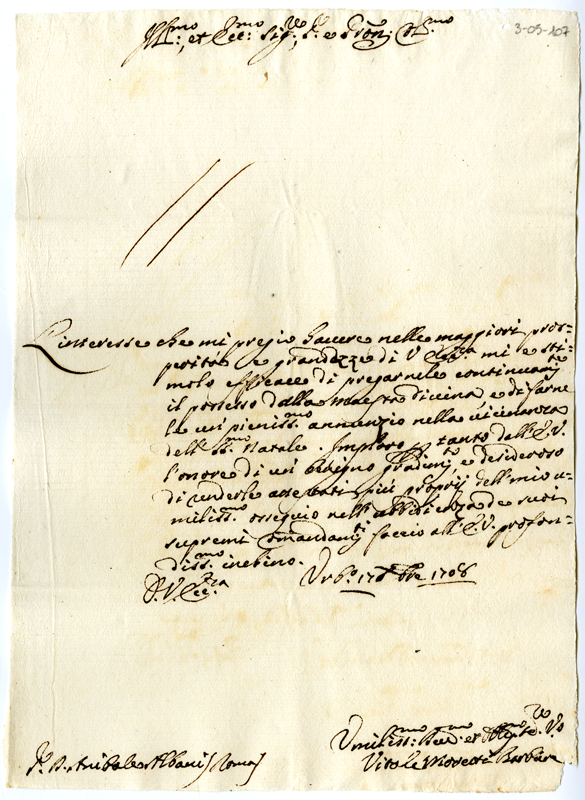 3-03-107
Ill:mo, et Ecc:mo Sig:re, Sr. e Pron: Col.mo
L'interesse che mi pregio havere nelle maggiori pros=
perità e grandezze di V. Ecc.za mi è sti=
molo efficace di pregarnele continuam.te
il possesso dalla Maestà divina e di farne
le un pieniss.mo annunzio nella vicinanza
dell SS.mo Natale. Imploro tanto dall'E.V.
l'onore di un benigno gradim.to, e desideroso
di renderle attestati più proprij dell mio u=
miliss.mo osseguio nell'abbidienza de suoi
supremi Comandam.ti faccio all'E.V. profon=
diss.mo inchino.
D. V. Ecc.za Urb.o 17 Xbre 1708
Umiliss:mo Dev.mo et Oblig.mo
Vitale
Sr. D. Anibale Albani / Roma /